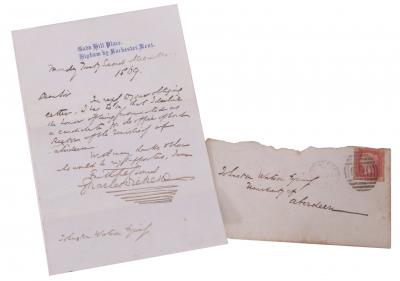 Gads Hill Place,
Higham by Rochester, Kent.
Monday Twenty Second
1869
Dear Sir
In reply to your obliging
letter, I beg to say that I decline
the honor of being nominated as
a candidate for the office of Lord
Rector of the University of
Aberdeen.
With many thanks to those
who would have supported, I am
Faithfully yours
Charles Dickens
Johnston Watson Esquire
Johnston Watson Esquire
University of
Aberdeen